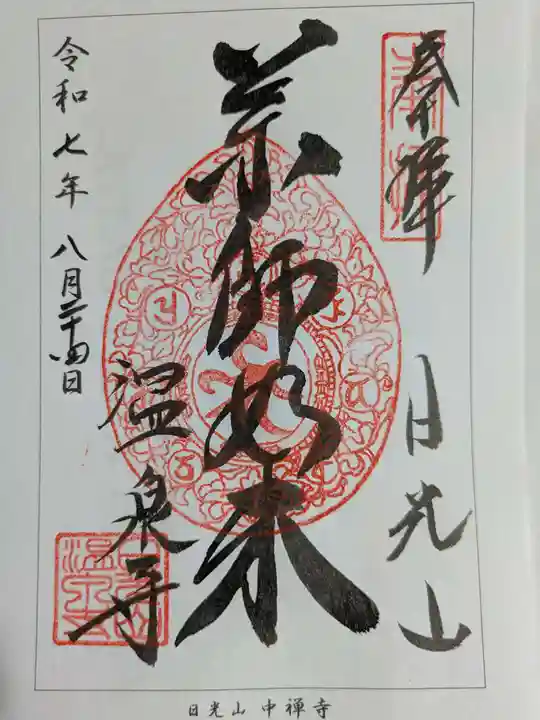 奉拝
日光山
薬師如来
温泉寺
令和七年八月二十四日
日光山 中禅寺